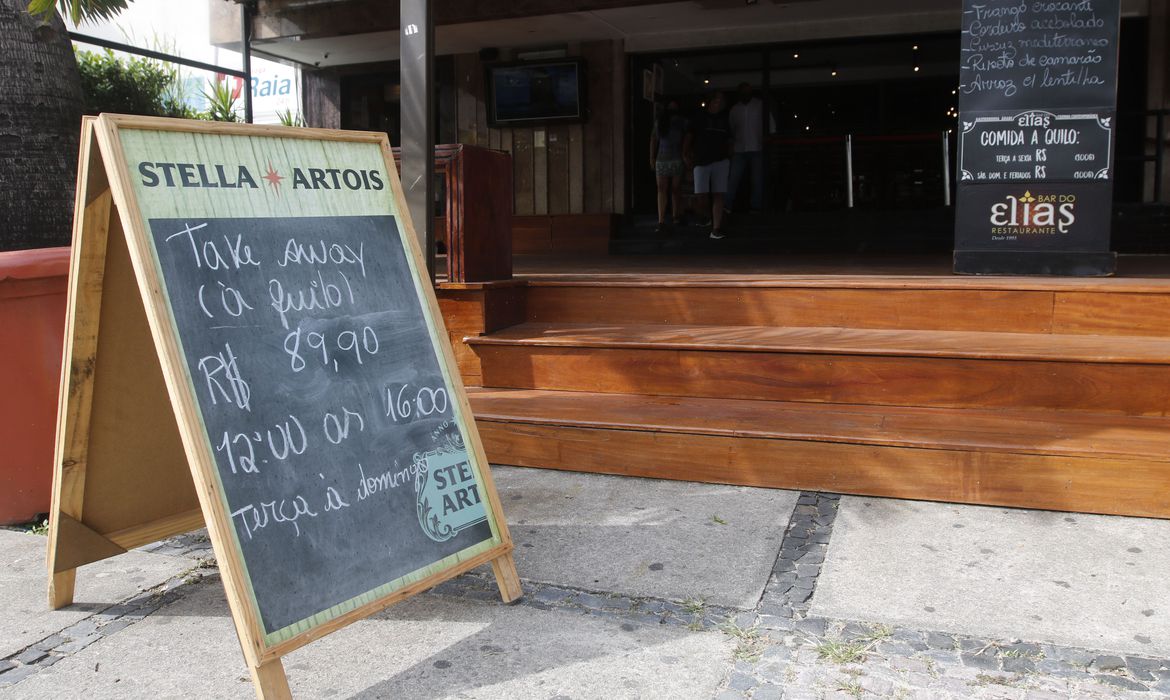 STELLA ARTOIS
Take away
(à quilo)
R$ 89,90
12:00 as 16:00
Terça à domingo
ANNO
STE
ART
Raia
Frango crocante
Cordeiro acebolado
Cuscuz mediterrâneo
Risoto de camarão
Arroz c/ lentilha
elias
COMIDA A QUILO:
TERÇA A SEXTA R$ (100G)
SÁB. DOM. E FERIADOS R$ (100G)
BAR DO
elias
RESTAURANTE
Desde 1993